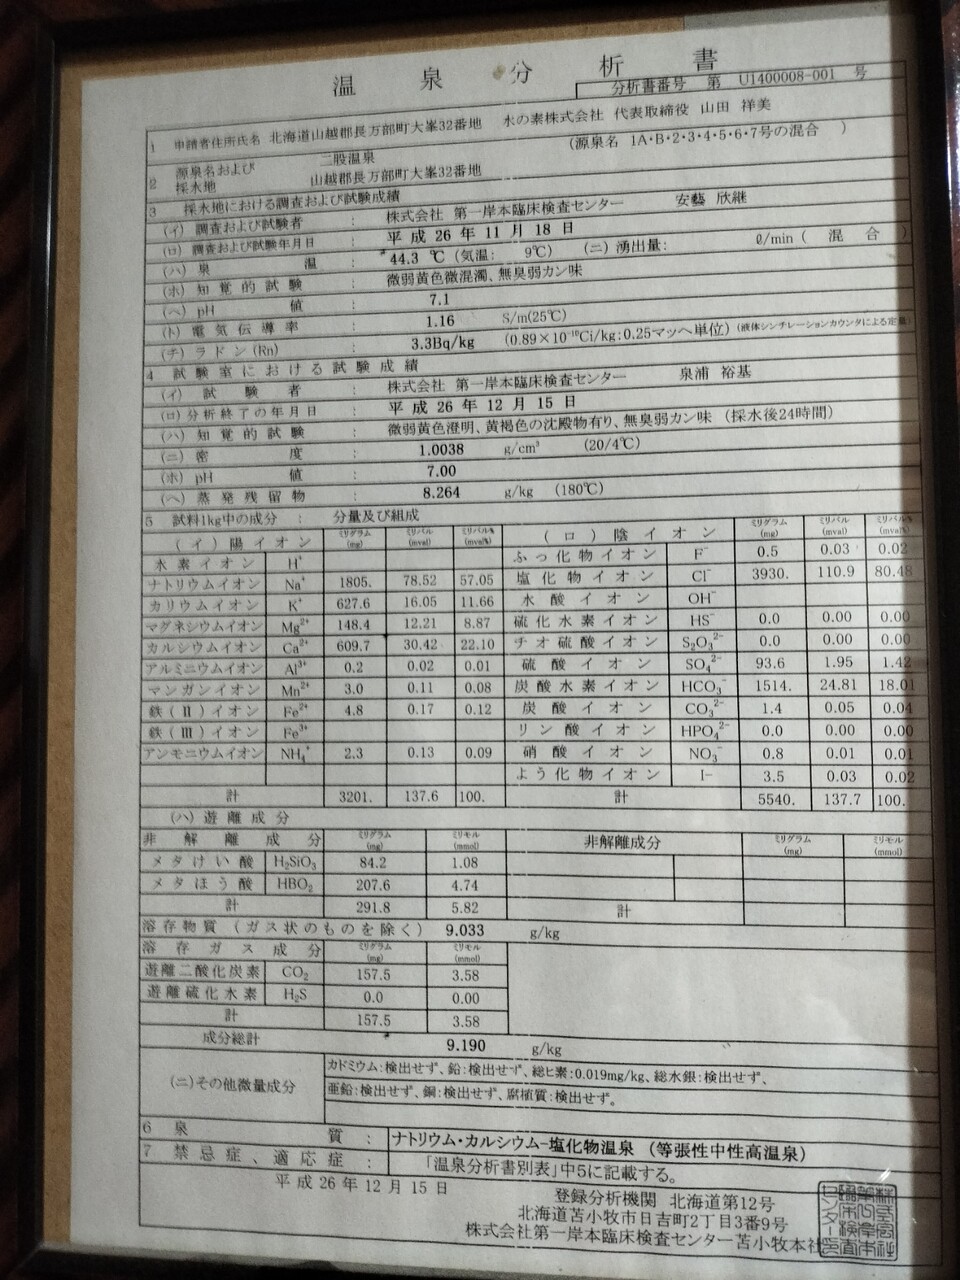 温泉分析書
分析書番号 第 U1400008-001 号
1 申請者住所氏名 北海道山越郡長万部町大峯32番地 水の素株式会社 代表取締役 山田 祥美
2 源泉名および採水地 二股温泉 (源泉名 1A・B・2・3・4・5・6・7号の混合)
山越郡長万部町大峯32番地
3 採水地における調査および試験成績
(イ) 調査および試験者 : 株式会社 第一岸本臨床検査センター 安藝 欣継
(ロ) 調査および試験年月日 : 平成 26 年 11 月 18 日
(ハ) 泉温 : 44.3 ℃ (気温: 9℃) (ニ) 湧出量: ℓ/min ( 混合 )
(ホ) 知覚的試験 : 微弱黄色微混濁、無臭弱カン味
(ヘ) pH値 : 7.1
(ト) 電気伝導率 : 1.16 S/m(25℃)
(チ) ラドン(Rn) : 3.3Bq/kg (0.89×10⁻¹⁰Ci/kg:0.25マッヘ単位) (液体シンチレーションカウンタによる定量)
4 試験室における試験成績
(イ) 試験者 : 株式会社 第一岸本臨床検査センター 泉浦 裕基
(ロ) 分析終了の年月日 : 平成 26 年 12 月 15 日
(ハ) 知覚的試験 : 微弱黄色澄明、黄褐色の沈殿物有り、無臭弱カン味 (採水後24時間)
(ニ) 密度 : 1.0038 g/cm³ (20/4℃)
(ホ) pH値 : 7.00
(ヘ) 蒸発残留物 : 8.264 g/kg (180℃)
5 試料1kg中の成分 : 分量及び組成
(イ) 陽イオン ミリグラム(mg) ミリバル(mval) ミリバル%(mval%) (ロ) 陰イオン ミリグラム(mg) ミリバル(mval) ミリバル%(mval%)
水素イオン H⁺ ふっ化物イオン F⁻ 0.5 0.03 0.02
ナトリウムイオン Na⁺ 1805. 78.52 57.05 塩化物イオン Cl⁻ 3930. 110.9 80.48
カリウムイオン K⁺ 627.6 16.05 11.66 水酸イオン OH⁻
マグネシウムイオン Mg²⁺ 148.4 12.21 8.87 硫化水素イオン HS⁻ 0.0 0.00 0.00
カルシウムイオン Ca²⁺ 609.7 30.42 22.10 チオ硫酸イオン S₂O₃²⁻ 0.0 0.00 0.00
アルミニウムイオン Al³⁺ 0.2 0.02 0.01 硫酸イオン SO₄²⁻ 93.6 1.95 1.42
マンガンイオン Mn²⁺ 3.0 0.11 0.08 炭酸水素イオン HCO₃⁻ 1514. 24.81 18.01
鉄(Ⅱ)イオン Fe²⁺ 4.8 0.17 0.12 炭酸イオン CO₃²⁻ 1.4 0.05 0.04
鉄(Ⅲ)イオン Fe³⁺ リン酸イオン HPO₄²⁻ 0.0 0.00 0.00
アンモニウムイオン NH₄⁺ 2.3 0.13 0.09 硝酸イオン NO₃⁻ 0.8 0.01 0.01
よう化物イオン I− 3.5 0.03 0.02
計 3201. 137.6 100. 計 5540. 137.7 100.
(ハ) 遊離成分
非解離成分 ミリグラム(mg) ミリモル(mmol) 非解離成分 ミリグラム(mg) ミリモル(mmol)
メタけい酸 H₂SiO₃ 84.2 1.08
メタほう酸 HBO₂ 207.6 4.74
計 291.8 5.82 計
溶存物質 (ガス状のものを除く) 9.033 g/kg
溶存ガス成分 ミリグラム(mg) ミリモル(mmol)
遊離二酸化炭素 CO₂ 157.5 3.58
遊離硫化水素 H₂S 0.0 0.00
計 157.5 3.58
成分総計 9.190 g/kg
(ニ)その他微量成分 カドミウム:検出せず、鉛:検出せず、総ヒ素:0.019mg/kg、総水銀:検出せず、
亜鉛:検出せず、銅:検出せず、腐植質:検出せず。
6 泉質 : ナトリウム・カルシウム-塩化物温泉 (等張性中性高温泉)
7 禁忌症、適応症 : 「温泉分析書別表」中5に記載する。
平成 26 年 12 月 15 日
登録分析機関 北海道第12号
北海道苫小牧市日吉町2丁目3番9号
株式会社第一岸本臨床検査センター苫小牧本社